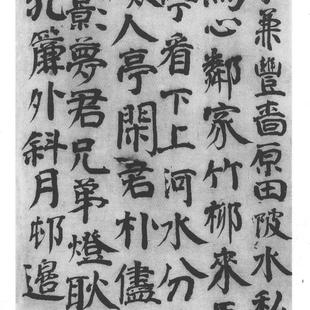 兼豐嗇原田陂水私
心鄰家竹柳來
亭看下上河水分
人亭閑君朴儘
景夢君兄弟燈耿
簾外斜月邨邊